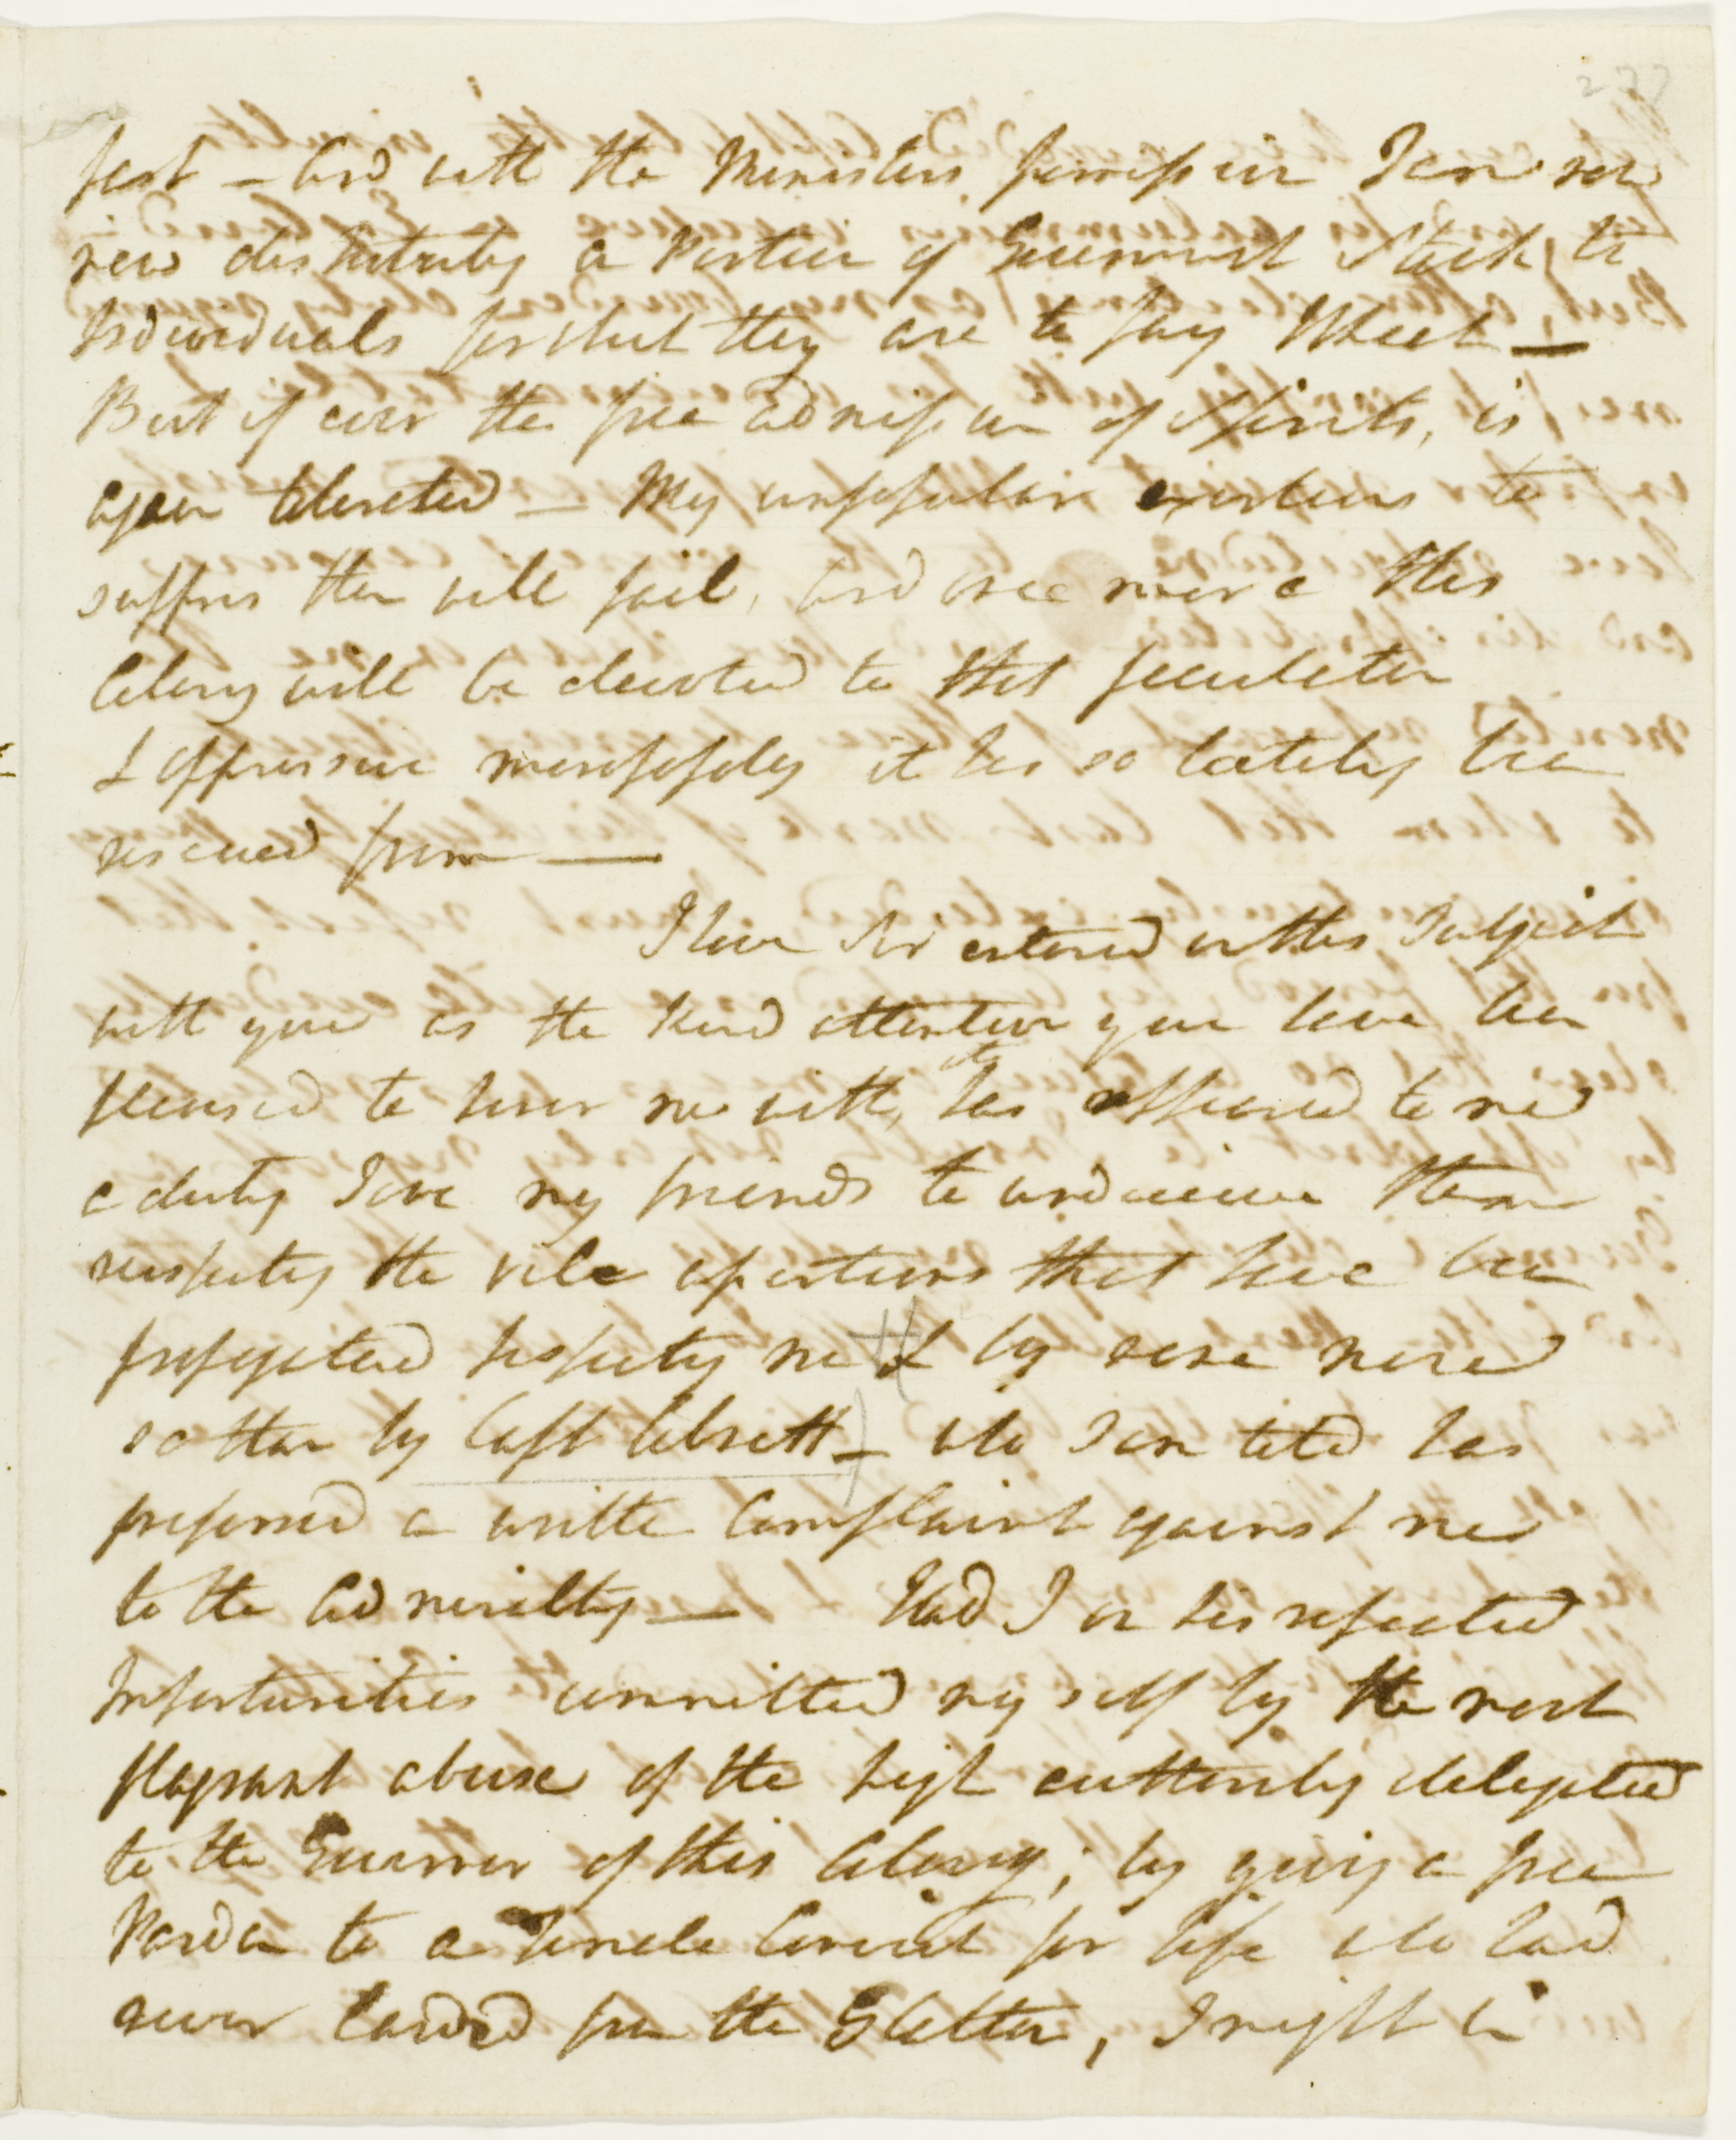 fast – And with the Ministers permission I am now
new distributing a Portion of Government Stock, to
Individuals for which they are to pay Wheat –
But if ever the free admission of Spirits, is
again tolerated – My unpopular exertions to
suppress them will fail, and once more this
Colony will be devoted to that peculation
& oppressive monopoly it has so lately been
rescued from —
I have Sir entered on this Subject
with you as the kind attention you have been
pleased to honor me with, it has appeared to me
a duty I owe my friends to undeceive them
respecting the vile aspersions that have been
propagated respecting me & by none more
so than by Capt Colnett – who I am told has
preferred a written Complaint against me
to the Admiralty – Had I on his repeated
Importunities committed myself by the most
flagrant abuse of the high authority delegated
to the Governor of this Colony; by giving a free
Pardon to a Female Convict for life who had
never landed from the Glatton, I might be